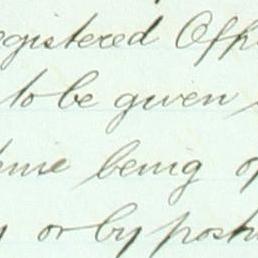 registered Offi
to be given
time being of
y or by post